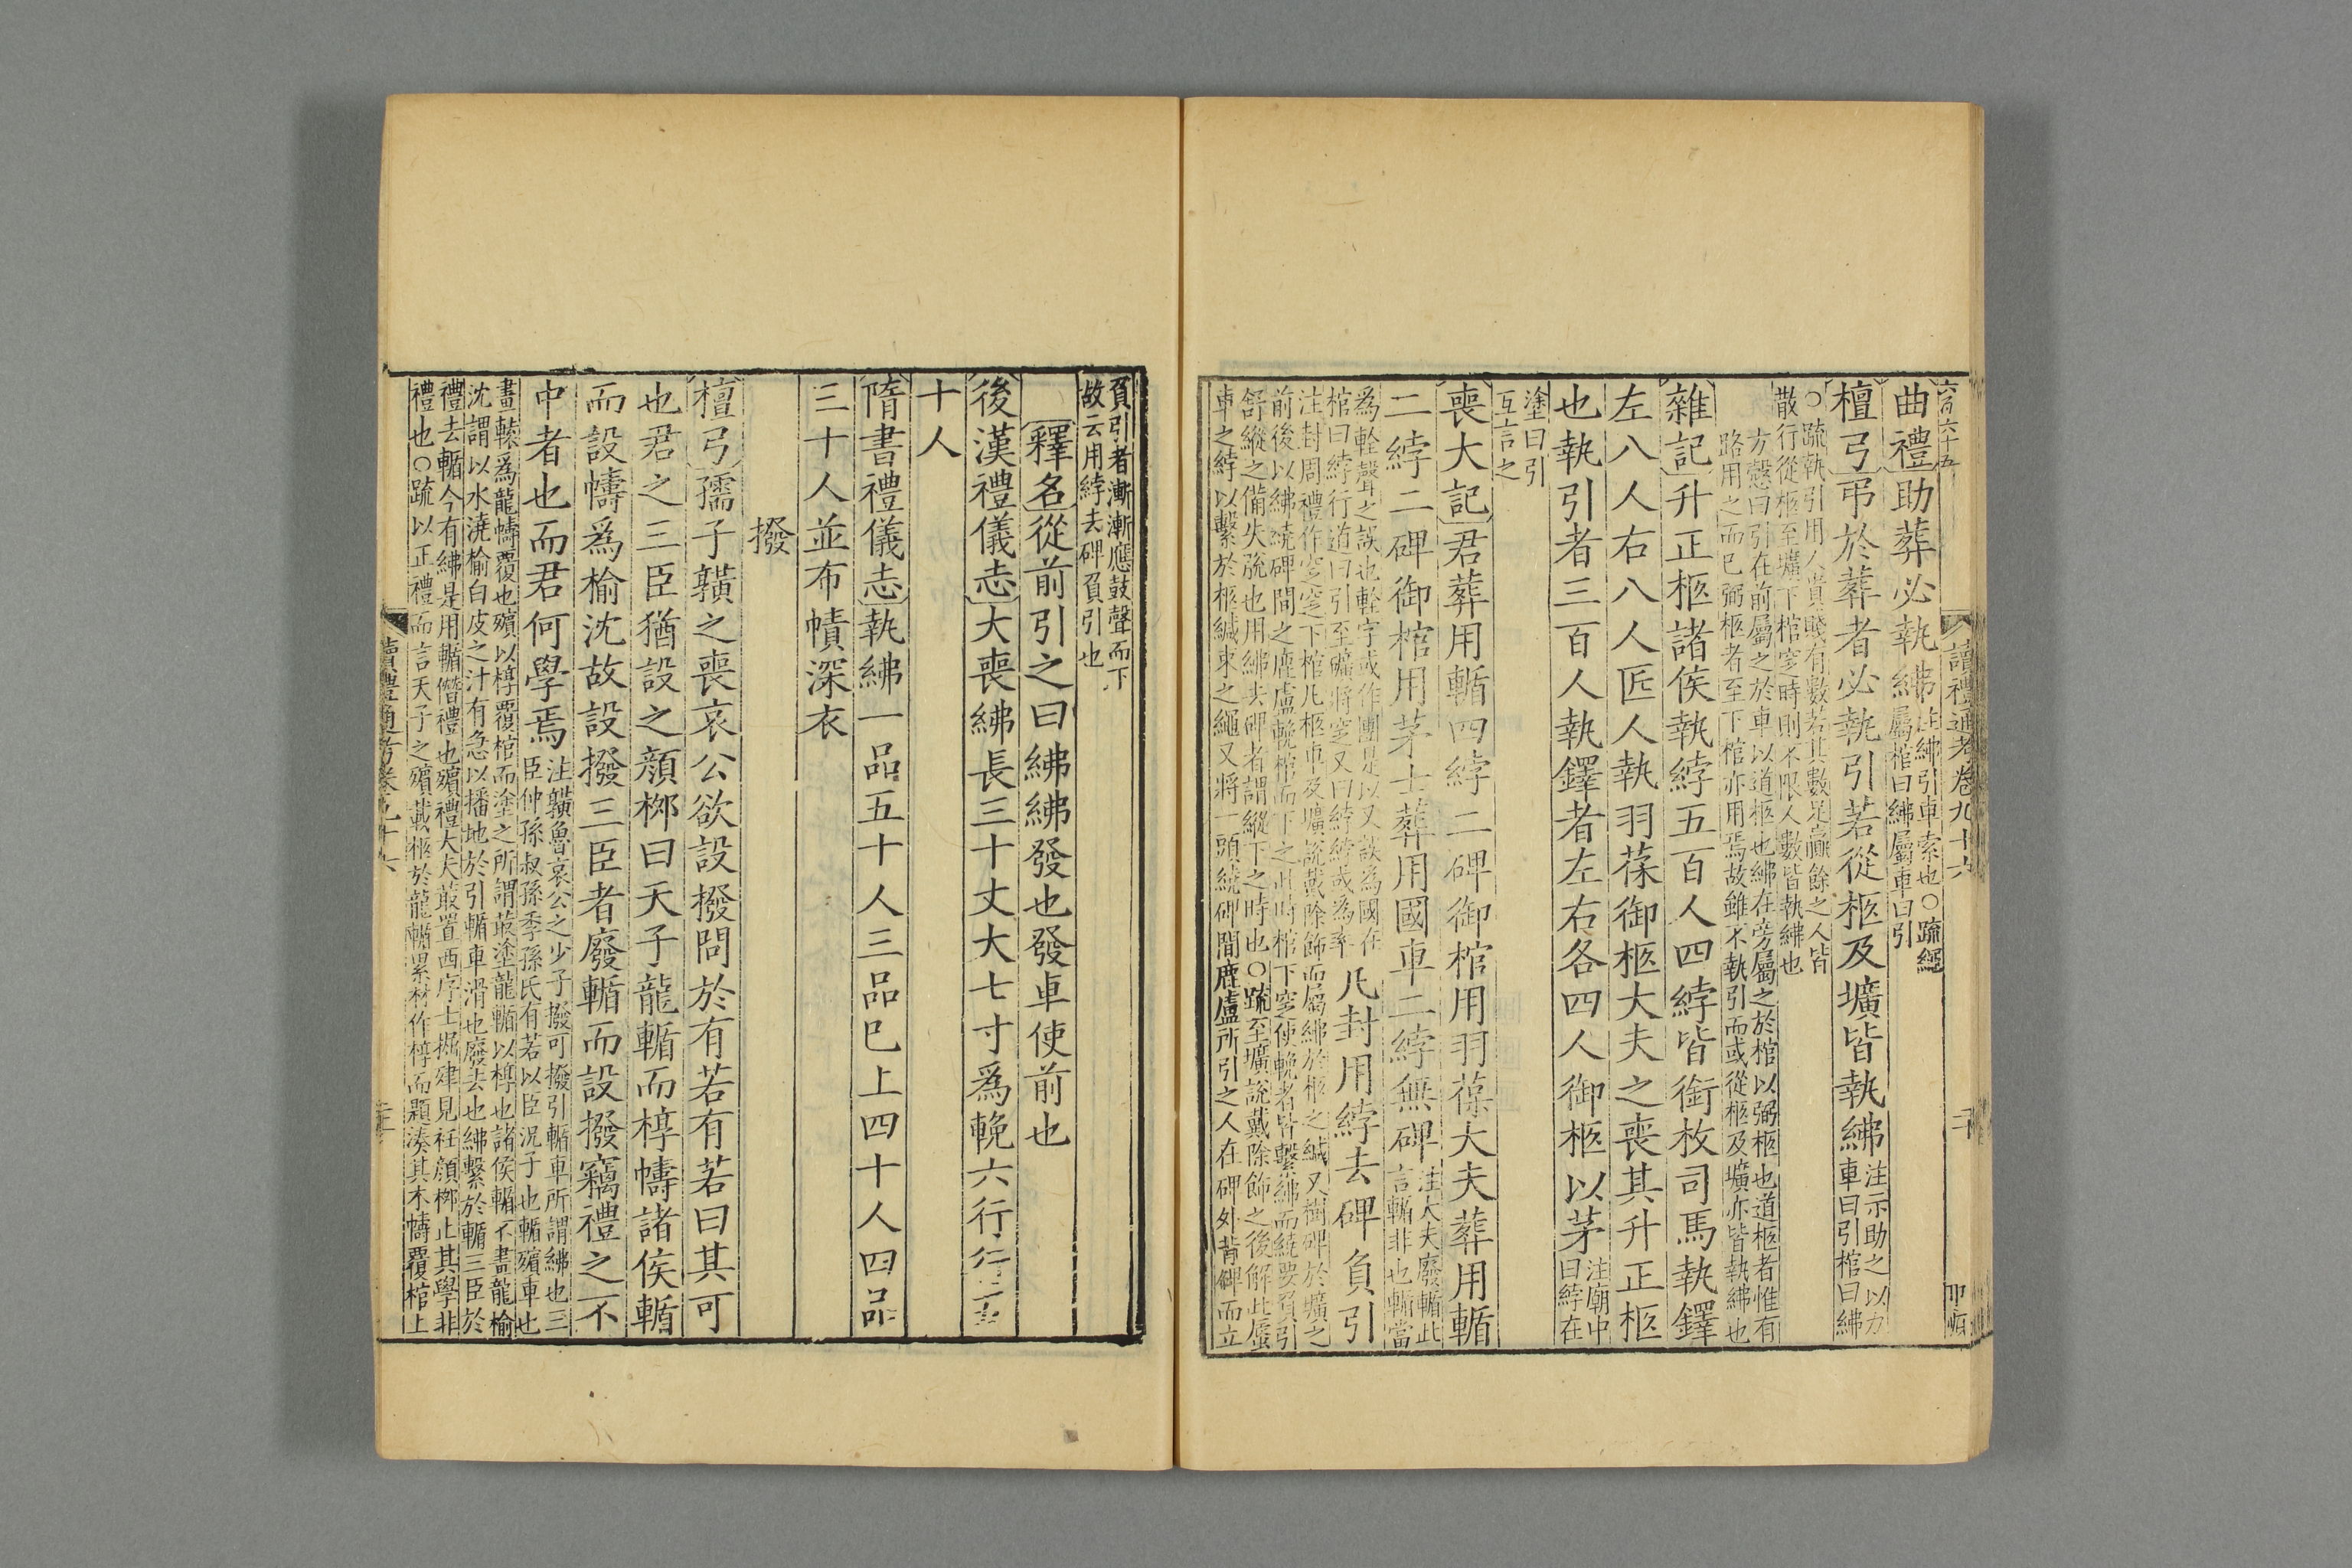 讀禮通考卷九十六
曲禮助葬必執紼注紼引車索也○疏繩
屬棺曰紼屬車曰引
檀弓弔於葬者必執引若從柩及壙皆執紼注示助之以力
車曰引棺曰紼
○疏執引用人貴賤有數若其數足贏餘之人皆
散行從柩至壙下棺窆時則不限人數皆執紼也
方慤曰引在前屬之於車以道柩也紼在旁屬之於棺以弼柩也道柩者惟有
路用之而已弼柩者至下棺亦用焉故雖不執引而或從柩及壙亦皆執紼也
雜記升正柩諸侯執綍五百人四綍皆銜枚司馬執鐸
左八人右八人匠人執羽葆御柩大夫之喪其升正柩
也執引者三百人執鐸者左右各四人御柩以茅注廟中
曰綍在
塗曰引
互言之
喪大記君葬用輴四綍二碑御棺用羽葆大夫葬用輴
二綍二碑御棺用茅士葬用國車二綍無碑注大夫廢輴此
言輴非也輴當
為輇聲之誤也輇字或作團是以又誤為國在
棺曰綍行道曰引至壙將窆又曰綍綍或為率
凡封用綍去碑負引
注封周禮作窆窆下棺凡柩車及壙說載除飾而屬紼於柩之緘又樹碑於壙之
前後以紼繞碑間之鹿盧輓棺而下之此時棺下窆使輓者皆繫紼而繞要負引
舒縱之備失脫也用紼去碑者謂縱下之時也○疏至壙說載除飾之後解此蜃
車之綍以繫於柩緘束之繩又將一頭繞碑間鹿盧所引之人在碑外背碑而立
負引者漸漸應鼓聲而下
故云用綍去碑負引也
釋名從前引之曰紼紼發也發車使前也
後漢禮儀志大喪紼長三十丈大七寸爲輓六行行五
十人
隋書禮儀志執紼一品五十人三品已上四十人四品
三十人並布幘深衣
撥
檀弓孺子䵍之喪哀公欲設撥問於有若有若曰其可
也君之三臣猶設之顏柳曰天子龍輴而椁幬諸侯輴
而設幬爲榆沈故設撥三臣者廢輴而設撥竊禮之不
中者也而君何學焉注䵍魯哀公之少子撥可撥引輴車所謂紼也三
臣仲孫叔孫季孫氏有若以臣況子也輴殯車也
畫轅爲龍幬覆也殯以椁覆棺而塗之所謂菆塗龍輴以椁也諸侯輴不畫龍榆
沈謂以水澆榆白皮之汁有急以播地於引輴車滑也廢去也紼繫於輴三臣於
禮去輴今有紼是用輴僭禮也殯禮大夫菆置西序士掘肂見衽顏柳止其學非
禮也○疏以正禮而言天子之殯載柩於龍輴累材作椁而題湊其木幬覆棺上
讀禮通考卷九十六